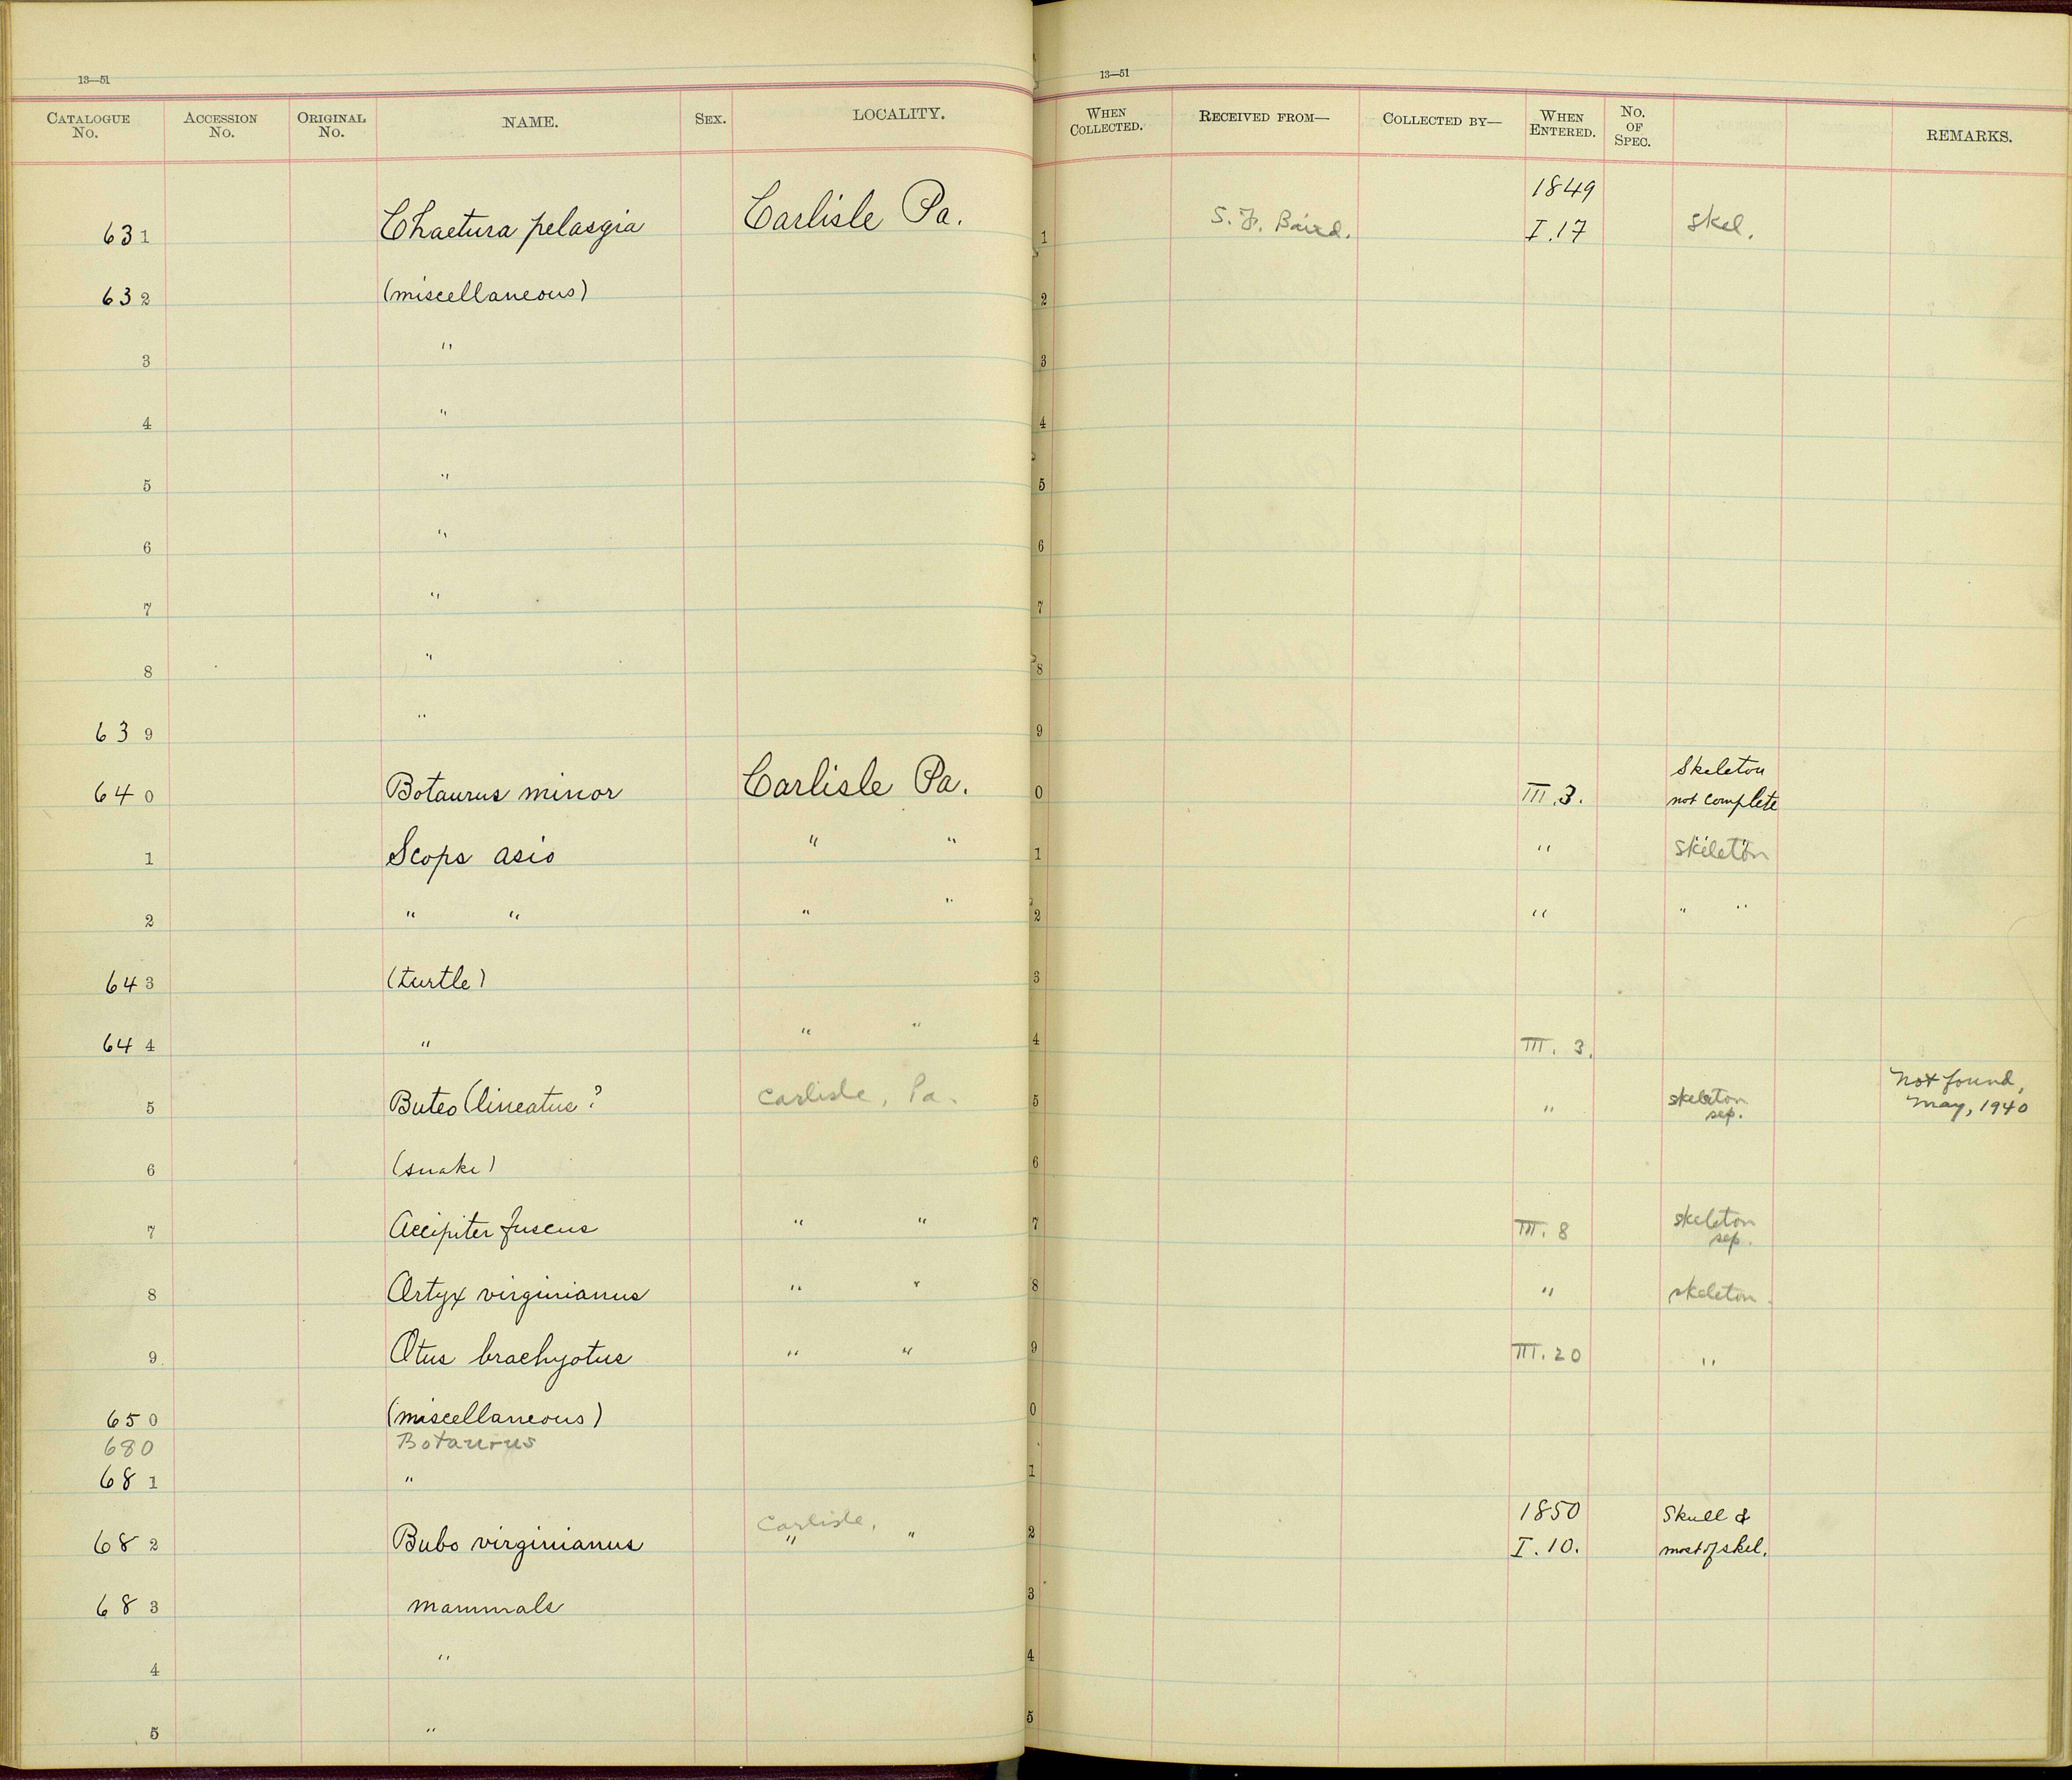 13—51
CATALOGUE No. ACCESSION No. ORIGINAL No. NAME. SEX. LOCALITY.
631 Chaetura pelasgia Carlisle Pa.
632 (miscellaneous)
3 "
4 "
5 "
6 "
7 "
8 "
639 "
640 Botaurus minor Carlisle Pa.
1 Scops asio " "
2 " " " "
643 (turtle)
644 " " "
5 Buteo (lineatus? Carlisle, Pa.
6 (snake)
7 Accipiter fuscus " "
8 Ortyx virginianus " "
9 Otus brachyotus " "
650 (miscellaneous)
680 Botaurus
681 "
Carlisle,
682 Bubo virginianus " "
683 mammals
4 "
5 "
13—51
WHEN COLLECTED. RECEIVED FROM— COLLECTED BY— WHEN ENTERED. NO. OF SPEC. REMARKS.
1849
1 S. F. Baird. I.17 Skel.
2
3
4
5
6
7
8
9
Skeleton
0 III.3. not complete
1 " skeleton
2 " " "
3
4 III. 3.
Not found,
5 " skeleton sep. May, 1940
6
7 III. 8 skeleton sep.
8 " skeleton.
9 III.20 "
0
1
1850 Skull &
2 I.10. most of skel.
3
4
5